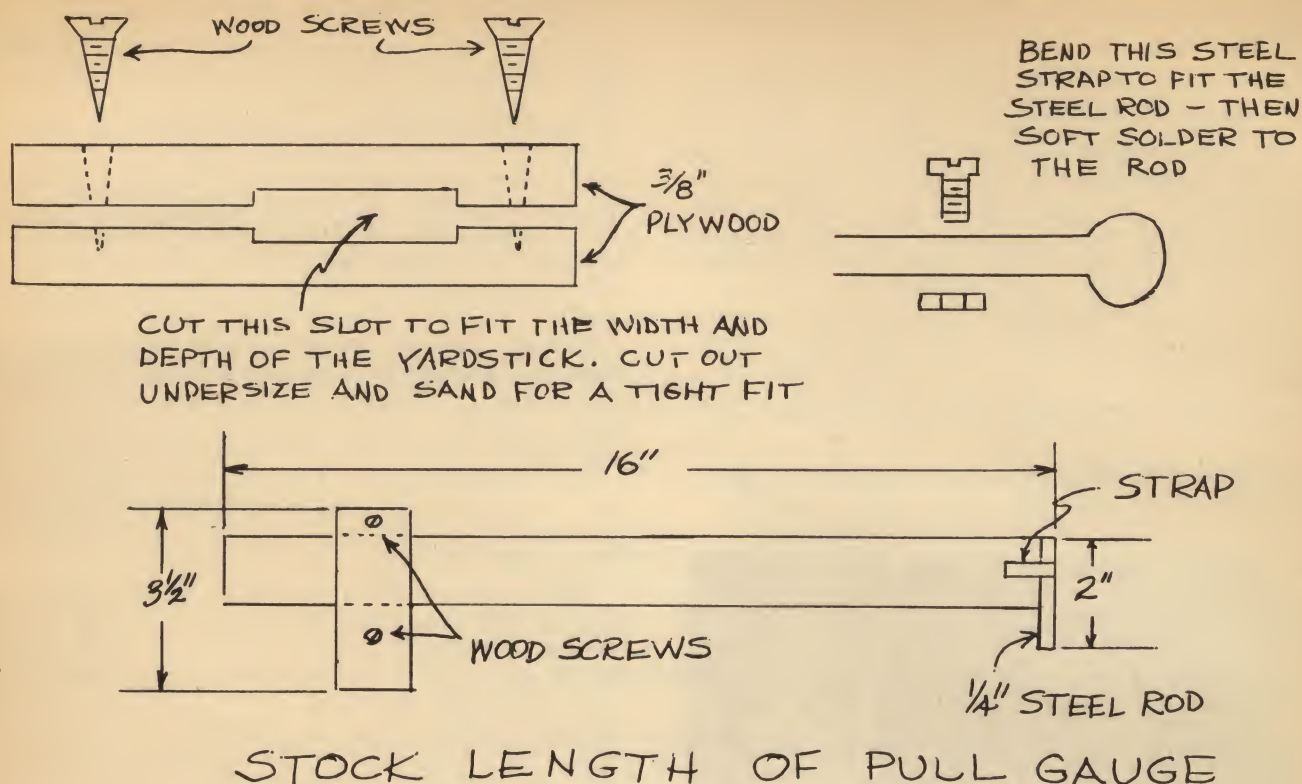 WOOD SCREWS
BEND THIS STEEL
STRAP TO FIT THE
STEEL ROD - THEN
SOFT SOLDER TO
THE ROD
3/8"
PLYWOOD
CUT THIS SLOT TO FIT THE WIDTH AND
DEPTH OF THE YARDSTICK. CUT OUT
UNDERSIZE AND SAND FOR A TIGHT FIT
16"
STRAP
3½"
2"
WOOD SCREWS
¼" STEEL ROD
STOCK LENGTH OF PULL GAUGE